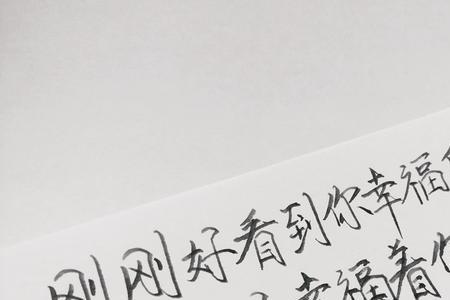 刚刚好看到你幸福
幸福着你